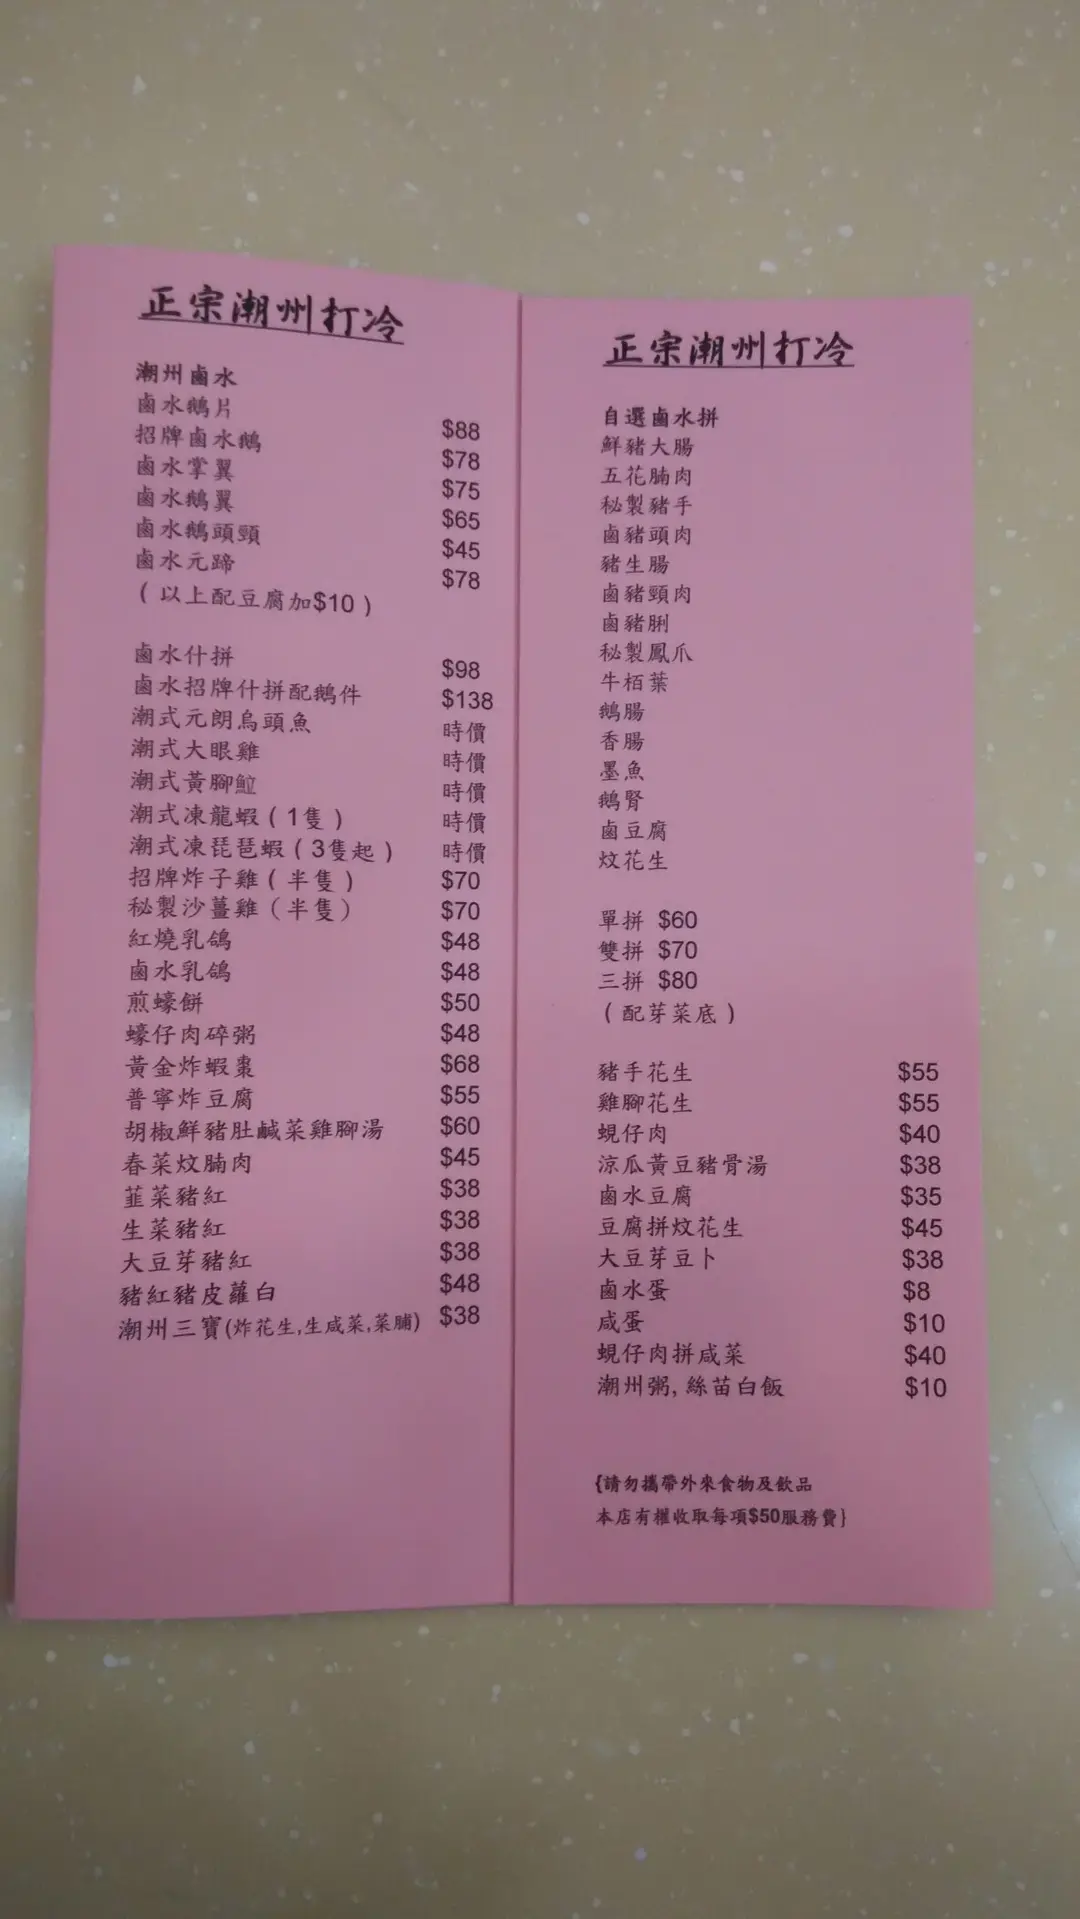 正宗潮州打冷
潮州鹵水
鹵水鵝片 $88
招牌鹵水鵝 $78
鹵水掌翼 $75
鹵水鵝翼 $65
鹵水鵝頭頸 $45
鹵水元蹄 $78
(以上配豆腐加$10)
鹵水什拼 $98
鹵水招牌什拼配鵝件 $138
潮式元朗烏頭魚 時價
潮式大眼雞 時價
潮式黃腳鱲 時價
潮式凍龍蝦(1隻) 時價
潮式凍琵琶蝦(3隻起) 時價
招牌炸子雞(半隻) $70
秘製沙薑雞(半隻) $70
紅燒乳鴿 $48
鹵水乳鴿 $48
煎蠔餅 $50
蠔仔肉碎粥 $48
黃金炸蝦棗 $68
普寧炸豆腐 $55
胡椒鮮豬肚鹹菜雞腳湯 $60
春菜炆腩肉 $45
韮菜豬紅 $38
生菜豬紅 $38
大豆芽豬紅 $38
豬紅豬皮蘿白 $48
潮州三寶(炸花生,生咸菜,菜脯) $38
正宗潮州打冷
自選鹵水拼
鮮豬大腸
五花腩肉
秘製豬手
鹵豬頭肉
豬生腸
鹵豬頸肉
鹵豬脷
秘製鳳爪
牛栢葉
鵝腸
香腸
墨魚
鵝腎
鹵豆腐
炆花生
單拼 $60
雙拼 $70
三拼 $80
(配芽菜底)
豬手花生 $55
雞腳花生 $55
蜆仔肉 $40
涼瓜黃豆豬骨湯 $38
鹵水豆腐 $35
豆腐拼炆花生 $45
大豆芽豆卜 $38
鹵水蛋 $8
咸蛋 $10
蜆仔肉拼咸菜 $40
潮州粥,絲苗白飯 $10
{請勿攜帶外來食物及飲品
本店有權收取每項$50服務費}